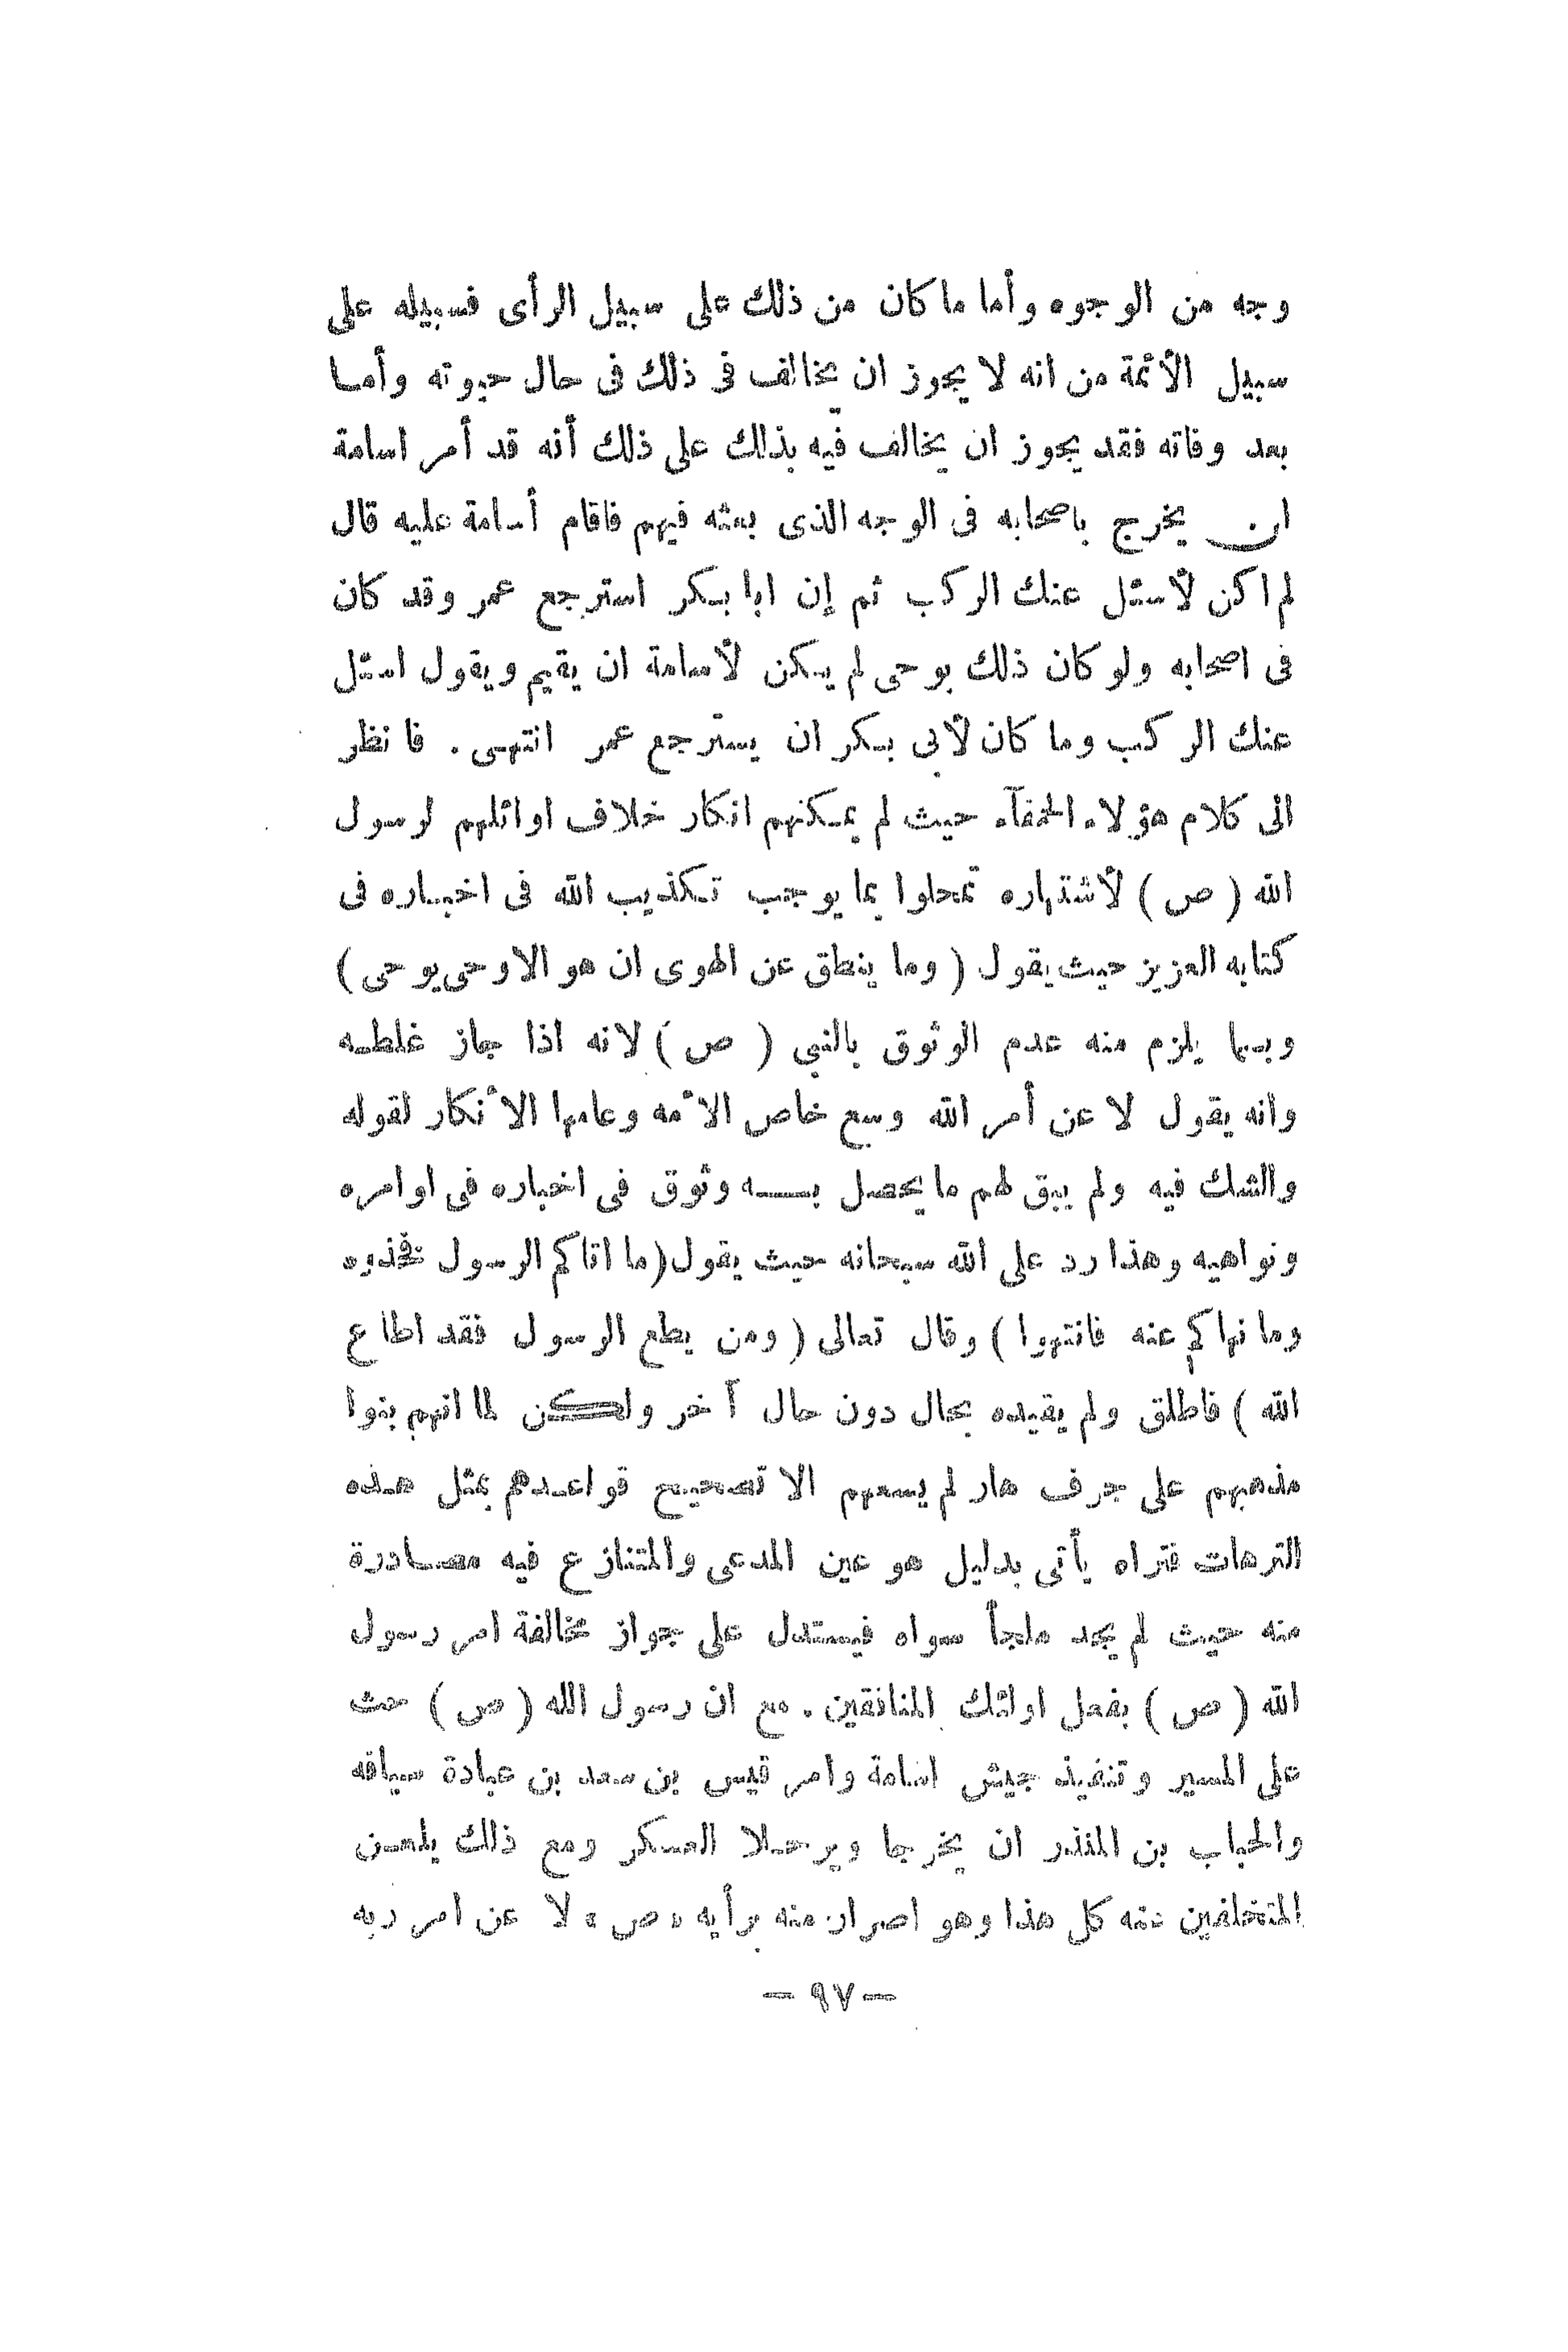 وجه من الوجوه وأما ما كان من ذلك على سبيل الرأى فسبيله على
سبيل الأئمة من انه لا يجوز ان يخالف فى ذلك فى حال حيوته وأما
بعد وفاته فقد يجوز ان يخالف فيه بذلك على ذلك أنه قد أمر اسامة
ان يخرج باصحابه فى الوجه الذى بعثه فيهم فاقام أسامة عليه قال
لم اكن لأسئل عنك الركب ثم إن ابا بكر استرجع عمر وقد كان
فى اصحابه ولو كان ذلك بوحى لم يكن لأسامة ان يقيم ويقول اسئل
عنك الركب وما كان لأبى بكر ان يسترجع عمر انتهى . فانظر
الى كلام هؤلاء الخفآء حيث لم يمكنهم انكار خلاف اوائلهم لرسول
الله ( ص ) لأشتهاره تمحلوا بما يوجب تكذيب الله فى اخباره فى
كتابه العزيز حيث يقول ( وما ينطق عن الهوى ان هو الا وحى يوحى )
وبما يلزم منه عدم الوثوق بالنبى ( ص ) لانه اذا جاز غلطه
وانه يقول لا عن أمر الله وسع خاص الأمه وعامها الأنكار لقوله
والشك فيه ولم يبق لهم ما يحصل به وثوق فى اخباره فى اوامره
ونواهيه وهذا رد على الله سبحانه حيث يقول ( ما اتاكم الرسول فخذوه
وما نهاكم عنه فانتهوا ) وقال تعالى ( ومن يطع الرسول فقد اطاع
الله ) فاطلق ولم يقيده بحال دون حال آخر ولكن لما انهم بنوا
مذهبهم على جرف هار لم يسعهم الا تصحيح قواعدهم بمثل هذه
الترهات فتراه يأتى بدليل هو عين المدعى والمتنازع فيه مصادرة
منه حيث لم يجد ملجأ سواه فيستدل على جواز مخالفة امر رسول
الله ( ص ) بفعل اولئك المنافقين . مع ان رسول الله ( ص ) حث
على المسير وتنفيذ جيش اسامة وامر قيس بن سعد بن عبادة سيافه
والحباب بن المنذر ان يخرجا ويرحلا العسكر ومع ذلك يلعن
المتخلفين عنه كل هذا وهو اصرار منه برأيه « ص » لا عن امر ربه
— ٩٧ —